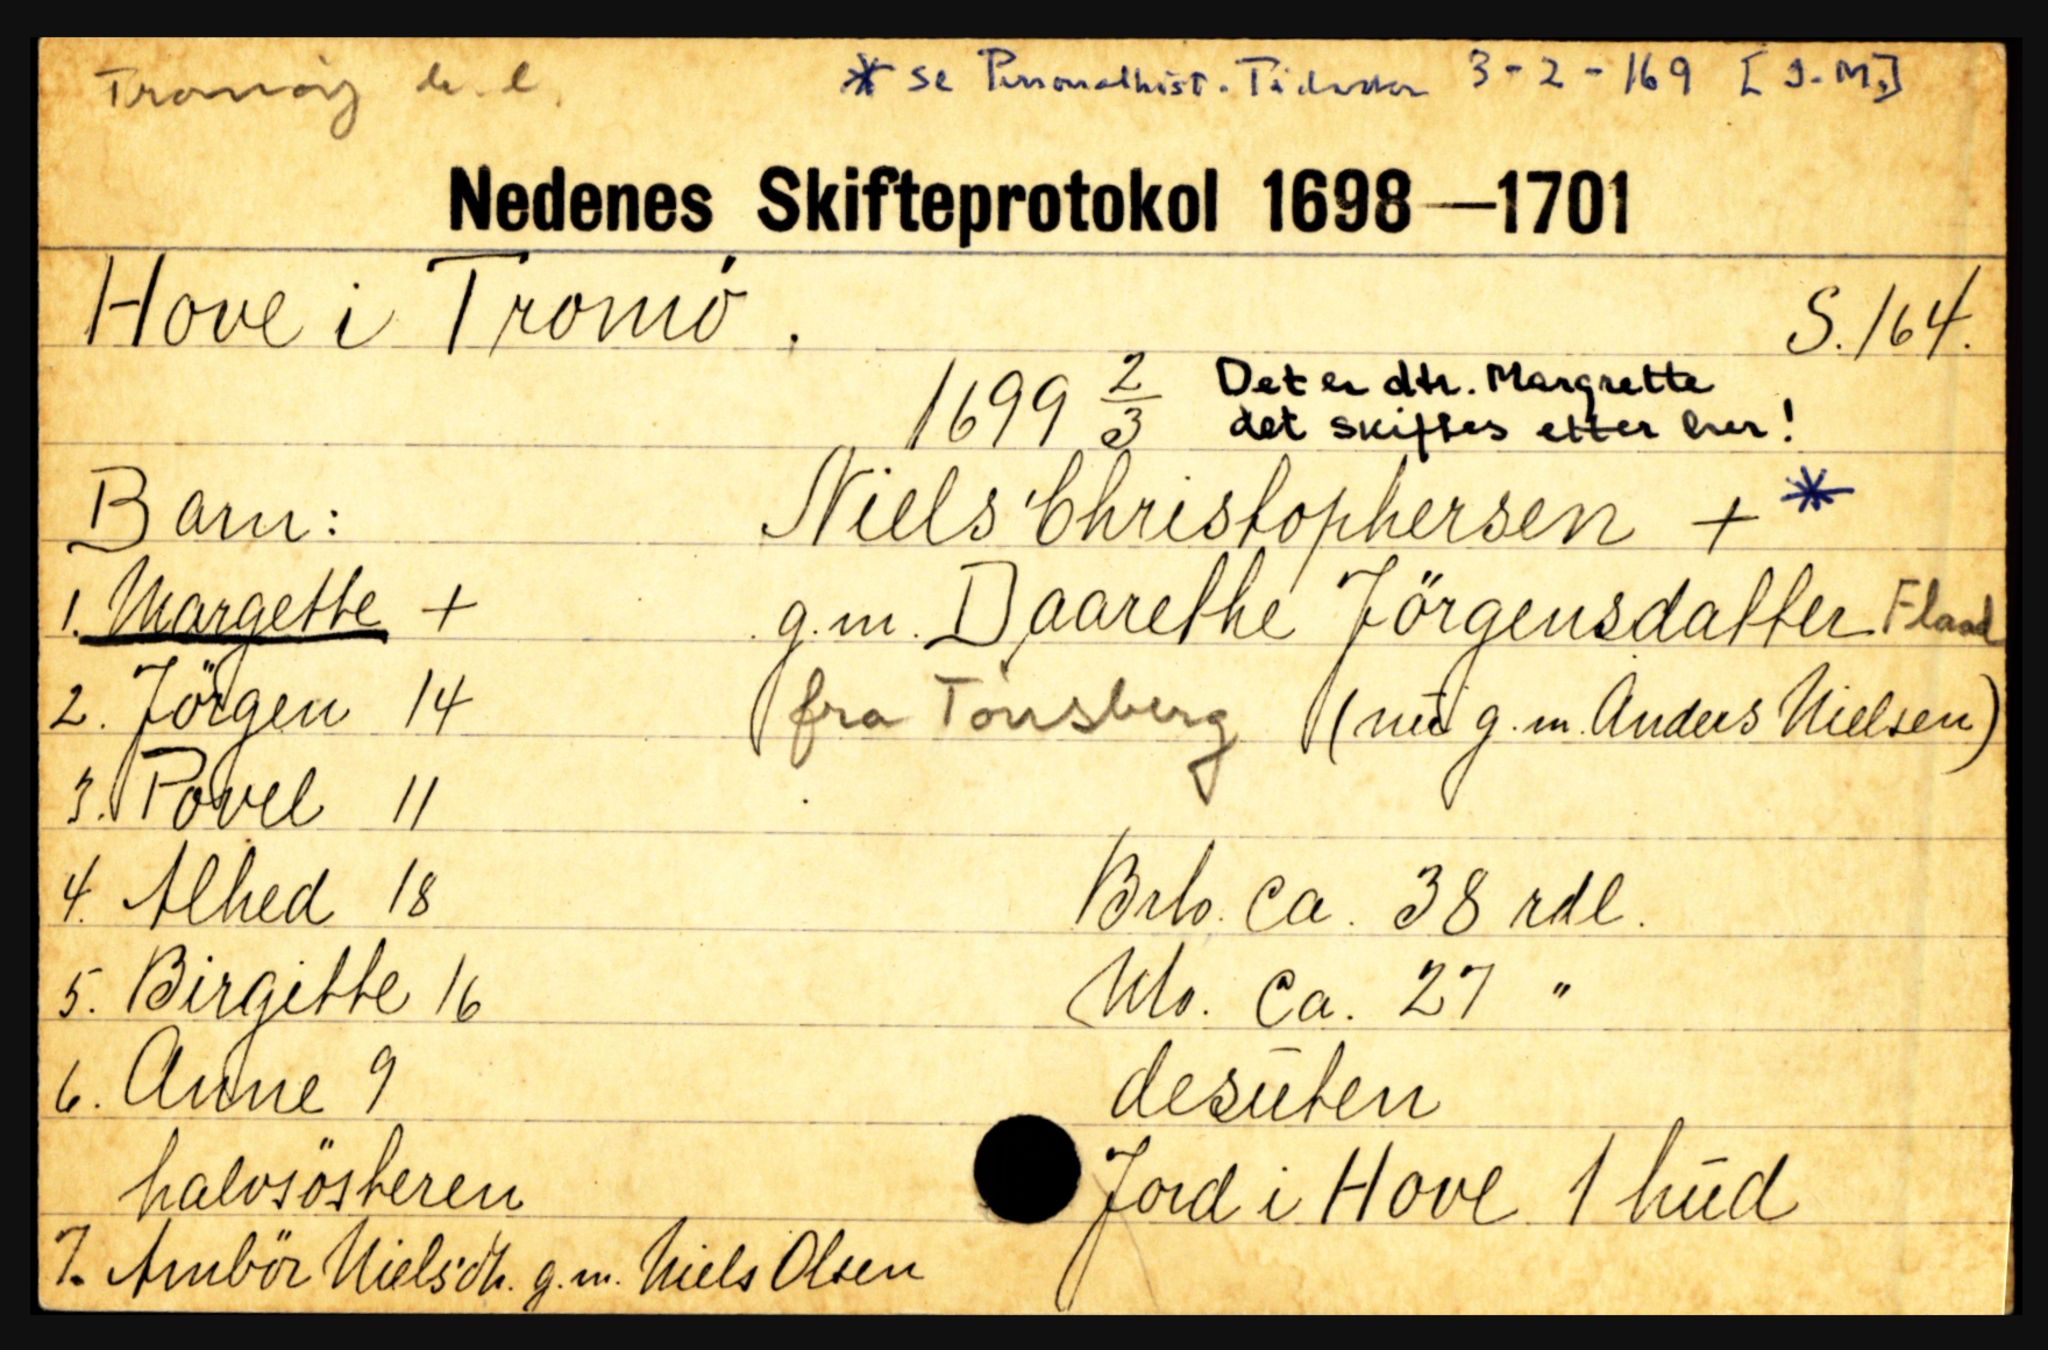 Tromøy h. l. * se Personalhist. Tidsskr 3-2-169 [J.M.]
Nedenes Skifteprotokol 1698—1701
Hove i Tromö. S. 164.
1699 2/3 Det er dtr. Margrette
det skiftes etter her!
Barn: Niels Christophersen + *
1. Margette + g.m. Daarethe Jörgensdatter Flaad
2. Jörgen 14 fra Tönsberg (nu g.m. Anders Nielsen)
3. Povel 11
4. Alhed 18 Brto. ca. 38 rdl.
5. Birgitte 16 Nto. ca. 27 "
6. Anne 9 desuten
halvsösteren Jord i Hove 1 hud
7. Ambör Nielsdtr. g.m. Niels Olsen